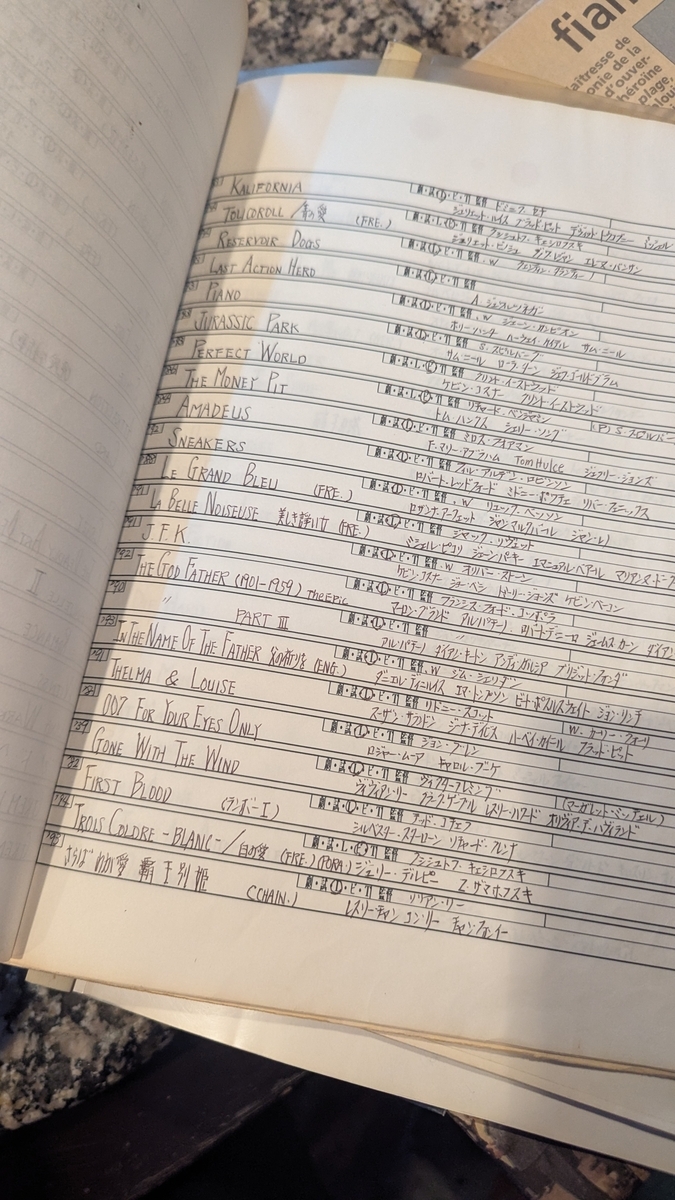 fian
aîtresse de
onie de la
d'ouver-
héroïne
plage,
KALIFORNIA
劇・試・L・ビ・TV 監督 ドミニク・セナ
ジュリエット・ルイス ブラッド・ピット デヴィッド・ドゥカブニー ミッシェル
青の愛 (FRE.)
劇・試・L・ビ・TV 監督 クシシュトフ・キェシロフスキ
ジュリエット・ビノシュ
RESERVOIR DOGS
劇・試・L・ビ・TV 監督.W
LAST ACTION HERO
劇・試・L・ビ・TV 監督
A.シュワルツネガー
PIANO
劇・試・L・ビ・TV 監督.W ジェーン・カンピオン
ホリー・ハンター ハーヴェイ・カイテル サム・ニール
JURASSIC PARK
劇・試・L・ビ・TV 監督 S.スピルバーグ
サム・ニール ローラ・ダーン ジェフ・ゴールドブラム
PERFECT WORLD
劇・試・L・ビ・TV 監督 クリント・イーストウッド
ケビン・コスナー クリント・イーストウッド
THE MONEY PIT
劇・試・L・ビ・TV 監督 リチャード・ベンジャミン
トム・ハンクス シェリー・ロング
AMADEUS
劇・試・L・ビ・TV 監督 ミロス・フォアマン
F.マリー・アブラハム Tom Hulce ジェフリー・ジョーンズ
SNEAKERS
劇・試・L・ビ・TV 監督 フィル・アルデン・ロビンソン
ロバート・レッドフォード シドニー・ポワチエ リバー・フェニックス
LE GRAND BLEU (FRE.)
劇・試・L・ビ・TV 監督.W リュック・ベッソン
ロザンナ・アークェット ジャン・マルク・バール ジャン・レノ
LA BELLE NOISEUSE 美しき諍い女 (FRE.)
劇・試・L・ビ・TV 監督 ジャック・リヴェット
ミシェル・ピコリ ジェーン・バーキン エマニュエル・ベアール
J.F.K.
劇・試・L・ビ・TV 監督.W オリバー・ストーン
ケビン・コスナー ジョー・ペシ トミー・リー・ジョーンズ ケビン・ベーコン
THE GOD FATHER (1901-1959) The Epic
劇・試・L・ビ・TV 監督 フランシス・フォード・コッポラ
マーロン・ブランド アル・パチーノ ロバート・デニーロ ジェームス・カーン ダイアン
〃 PART III
劇・試・L・ビ・TV 監督 〃
アル・パチーノ ダイアン・キートン アンディ・ガルシア ブリジット・フォンダ
IN THE NAME OF THE FATHER 父の祈りを (ENG.)
劇・試・L・ビ・TV 監督.W ジム・シェリダン
ダニエル・デイ・ルイス エマ・トンプソン ピート・ポスルスウェイト ジョン・リンチ
THELMA & LOUISE
劇・試・L・ビ・TV 監督 リドニー・スコット
W.カーリー・クォーリ
スーザン・サランドン ジーナ・デイビス ハーベイ・カイテル ブラッド・ピット
007 FOR YOUR EYES ONLY
劇・試・L・ビ・TV 監督 ジョン・グレン
ロジャー・ムーア キャロル・ブーケ
GONE WITH THE WIND
劇・試・L・ビ・TV 監督 ヴィクター・フレミング
(マーガレット・ミッチェル)
ヴィヴィアン・リー クラーク・ゲーブル レスリー・ハワード オリヴィア・デ・ハヴィランド
FIRST BLOOD (ランボーI)
劇・試・L・ビ・TV 監督 テッド・コチェフ
シルベスター・スタローン リチャード・クレンナ
TROIS COLORE -BLANC- / 白の愛 (FRE.)(PORA)
劇・試・L・ビ・TV 監督 クシシュトフ・キェシロフスキ
ジュリー・デルピー Z.ザマホフスキ
さらばわが愛 覇王別姫 (CHAIN.)
劇・試・L・ビ・TV 監督
レスリー・チャン コン・リー チャン・フォンイー